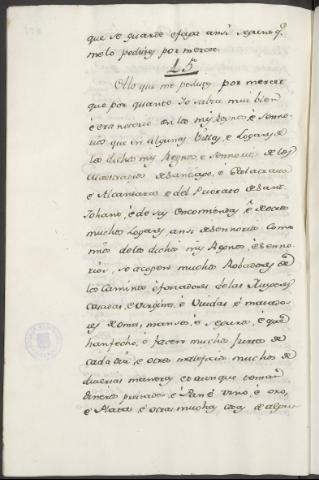 que se guarde e faga ansi segun q̃
melo pedistes por merced.
45
Otto que me pedistes por merced
que por quanto Yo sabia mui bien
è era notorio en los mis Regnos e Senno-
rios que en algunas Villas, e Logares de
los dichos mis Regnos e Sennorios de los
Maestrazgos de Santiago, e Calatrava
e Alcantara e del Priorato de Sant
Johan, è de sus encomiendas è de otros
muchos Logares ansi de Sennorios como
mios de los dichos mis Regnos, è Senno-
rios, se acogen muchos Robadores de
los Caminos è forzadores de las Mugeres
Casadas, e Virgines, e Viudas è matado-
res de omes, mansos, è seguros, è que
han fecho, e facen muchos furtos de
cada dia, e otros maleficios muchos de
diversas maneras et aunque toman
dineros prestados è Pan è Vino, è oro,
è Plata è otras muchas cosas de algunos